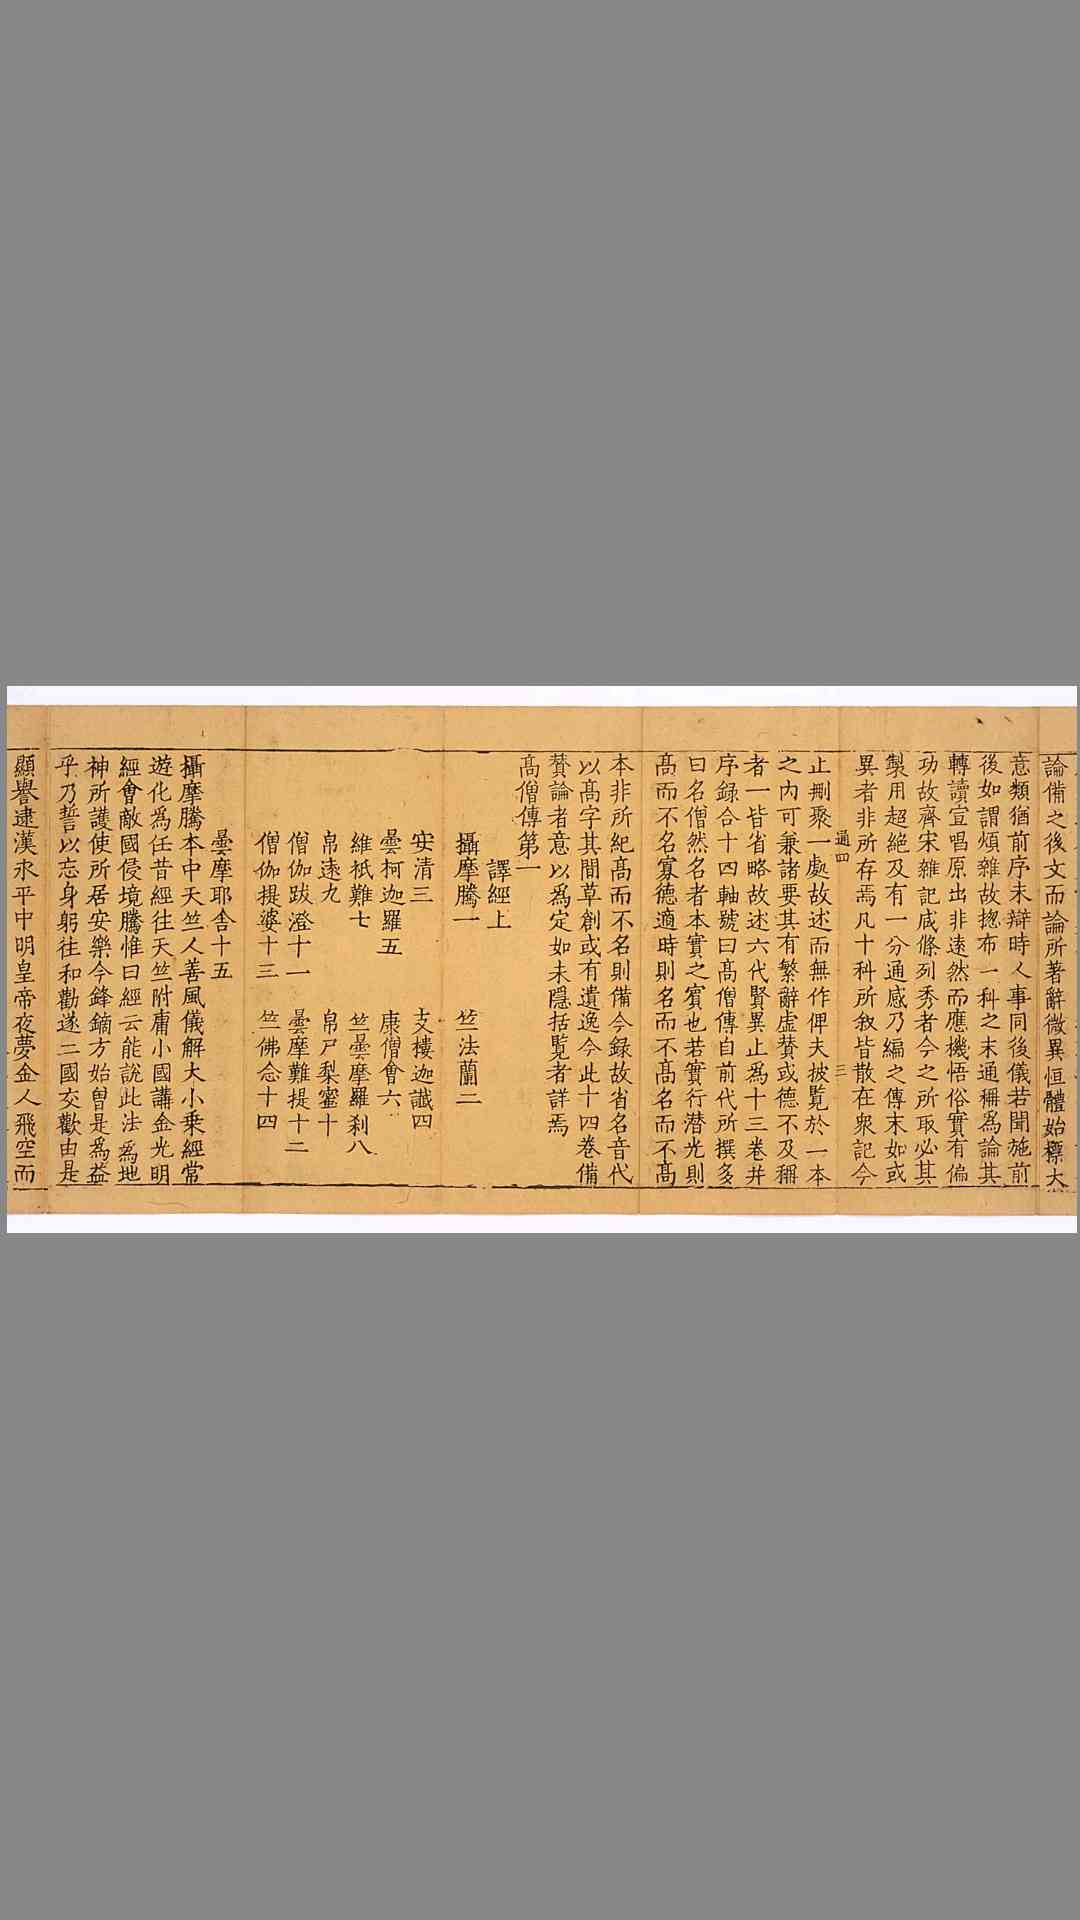 論備之後文而論所著辭微異恒體始標大
意類猶前序未辯時人事同後儀若聞施前
後如謂煩雜故揔布一科之末通稱爲論其
轉讀宣唱原出非遠然而應機悟俗實有偏
功故齊宋雜記咸條列秀者今之所取必其
製用超絶及有一分通感乃編之傳末如或
異者非所存焉凡十科所叙皆散在衆記今
通四 三
止刪聚一處故述而無作俾夫披覽於一本
之内可兼諸要其有繁辭虚賛或德不及稱
者一皆省略故述六代賢異止爲十三卷并
序録合十四軸號曰髙僧傳自前代所撰多
曰名僧然名者本實之賓也若實行潜光則
髙而不名寡德適時則名而不髙名而不髙
本非所紀髙而不名則備今録故省名音代
以髙字其間草創或有遺逸今此十四卷備
賛論者意以爲定如未隱括覽者詳焉
髙僧傳第一
譯經上
攝摩騰一 竺法蘭二
安清三 支樓迦讖四
曇柯迦羅五 康僧會六
維祇難七 竺曇摩羅刹八
帛遠九 帛尸梨蜜十
僧伽跋澄十一 曇摩難提十二
僧伽提婆十三 竺佛念十四
曇摩耶舍十五
攝摩騰本中天竺人善風儀解大小乗經常
遊化爲任昔經往天竺附庸小國講金光明
經會敵國侵境騰惟曰經云能說此法爲地
神所護使所居安樂今鋒鏑方始曽是爲益
乎乃誓以忘身躬往和勸遂二國交歡由是
顯譽逮漢永平中明皇帝夜夢金人飛空而